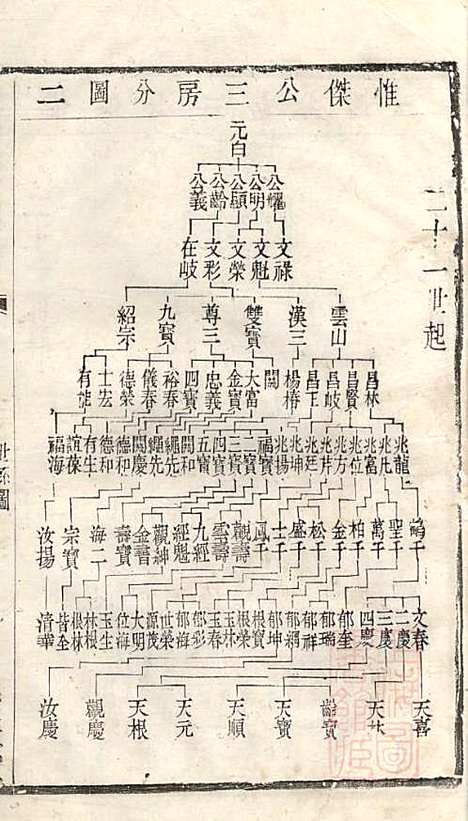 惟傑公三房分圖二
二十一世起
元白
公耀 公明 公顯 公齡 公義
文祿 文魁 文榮 文彩 在岐
雲山 漢三 雙寶 尊三 九寶 紹宗
昌林 昌賢 昌岐 昌玉 楊椿 闊 大富 金寶 忠義 四寶 裕春 儀春 德榮 士宏 有能
兆龍 兆凡 兆富 兆位 兆方 兆片 兆廷 兆坤 兆揚 福寶 二寶 三寶 四寶 五寶 開和 繩先 繩先 開慶 德和 德和 有生 誼保 福海
鶴千 聖千 萬千 柏千 金千 松千 盛千 士千 鳳千 觀壽 雲壽 九經 經魁 觀紳 金書 壽寶 海二 宗寶 汝揚
文春 二慶 三慶 四慶 郁奎 郁瑞 郁祥 郁綱 郁坤 根寶 根榮 玉林 玉春 郁彩 郁海 世榮 源茂 大明 位海 玉生 林根 根林 皆全 清華
天喜 天林 齡寶 天寶 天順 天元 天根 觀慶 汝慶
世系圖